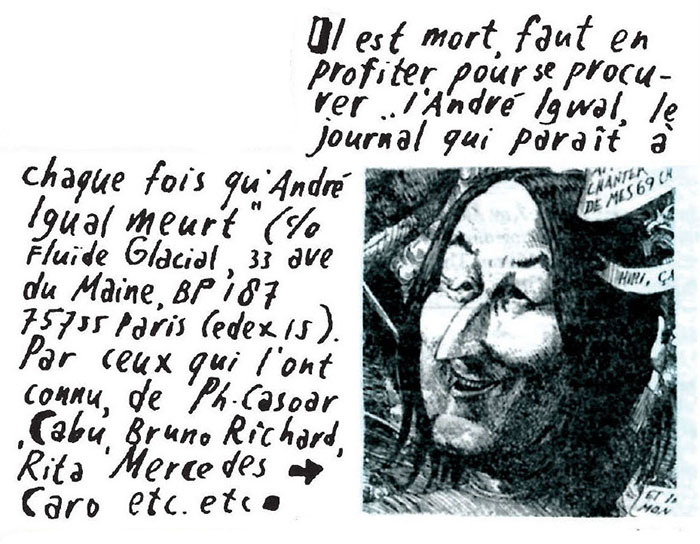 Il est mort, faut en
profiter pour se procu-
rer "l'André Igwal, le
journal qui paraît à
chaque fois qu'André
Igual meurt" (c/o
Fluide Glacial, 33 ave
du Maine, BP 187
75755 Paris Cedex 15).
Par ceux qui l'ont
connu, de Ph.Casoar
, Cabu, Bruno Richard,
Rita Mercedes →
Caro etc. etc.
CHANTER
DE MES 69 CH
HIHI, ÇA
ET JE
MON